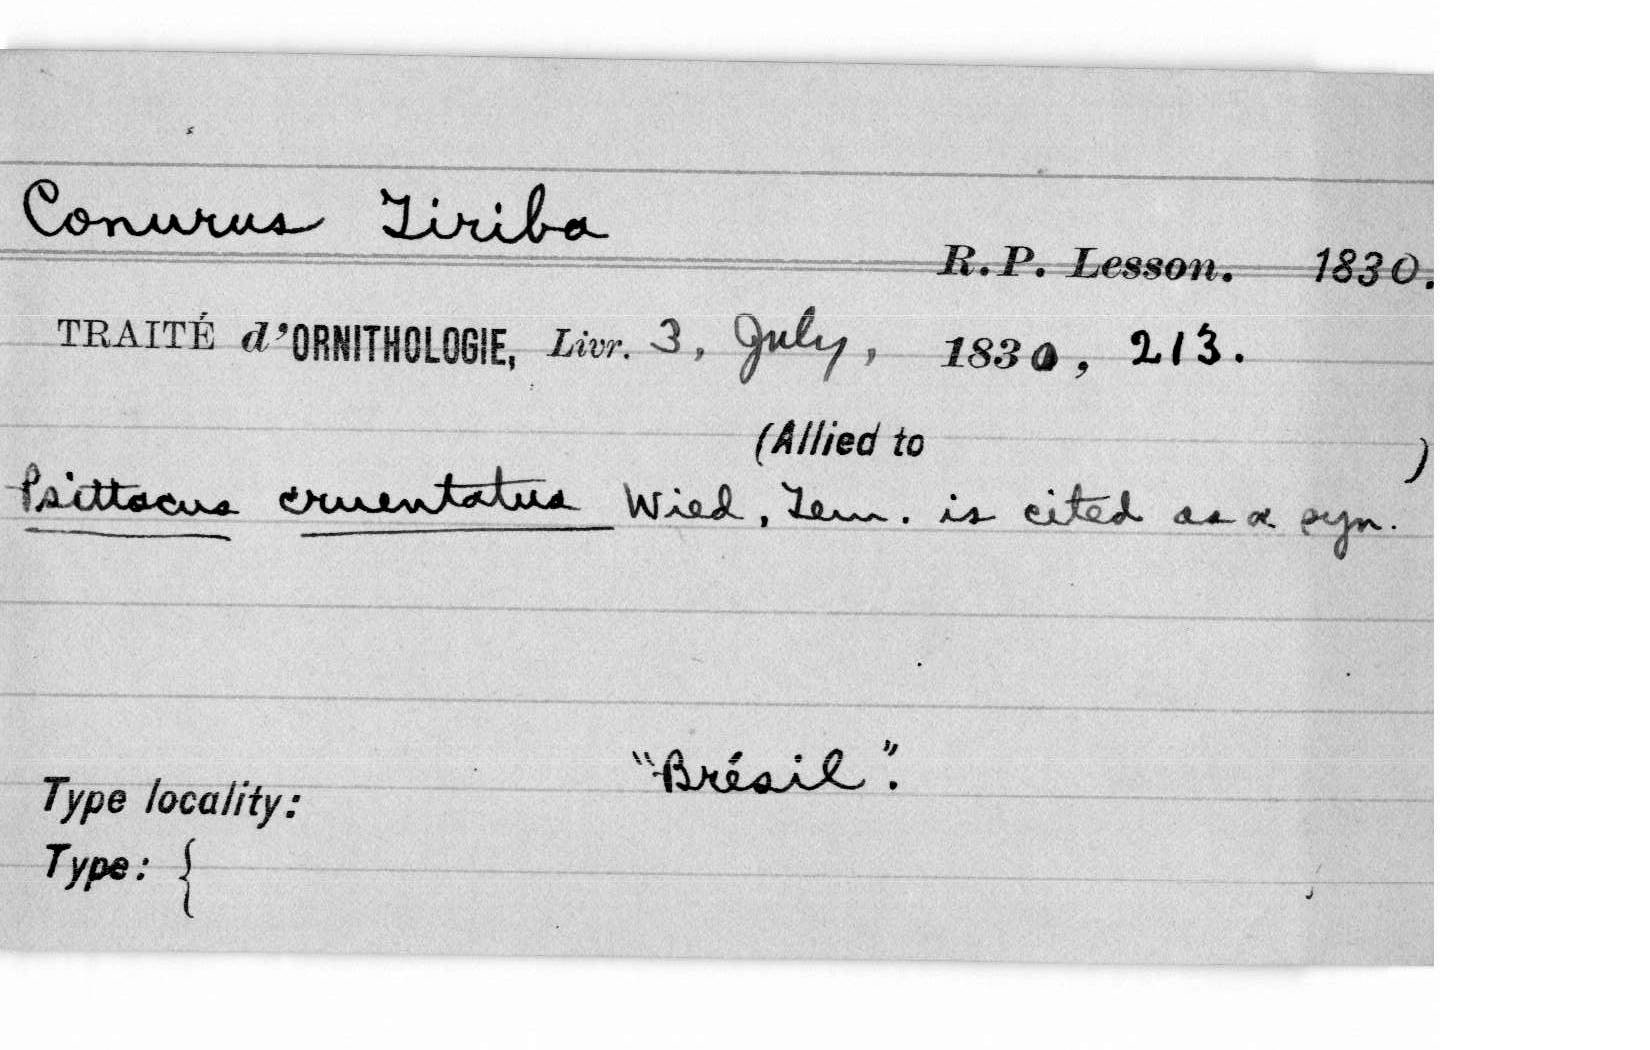 Conurus Tiriba
R.P. Lesson. 1830.
TRAITÉ d'ORNITHOLOGIE, Livr. 3, July, 1830, 213.
(Allied to )
Psittacus cruentatus Wied, Tem. is cited as a syn.
"Brésil".
Type locality:
Type: {